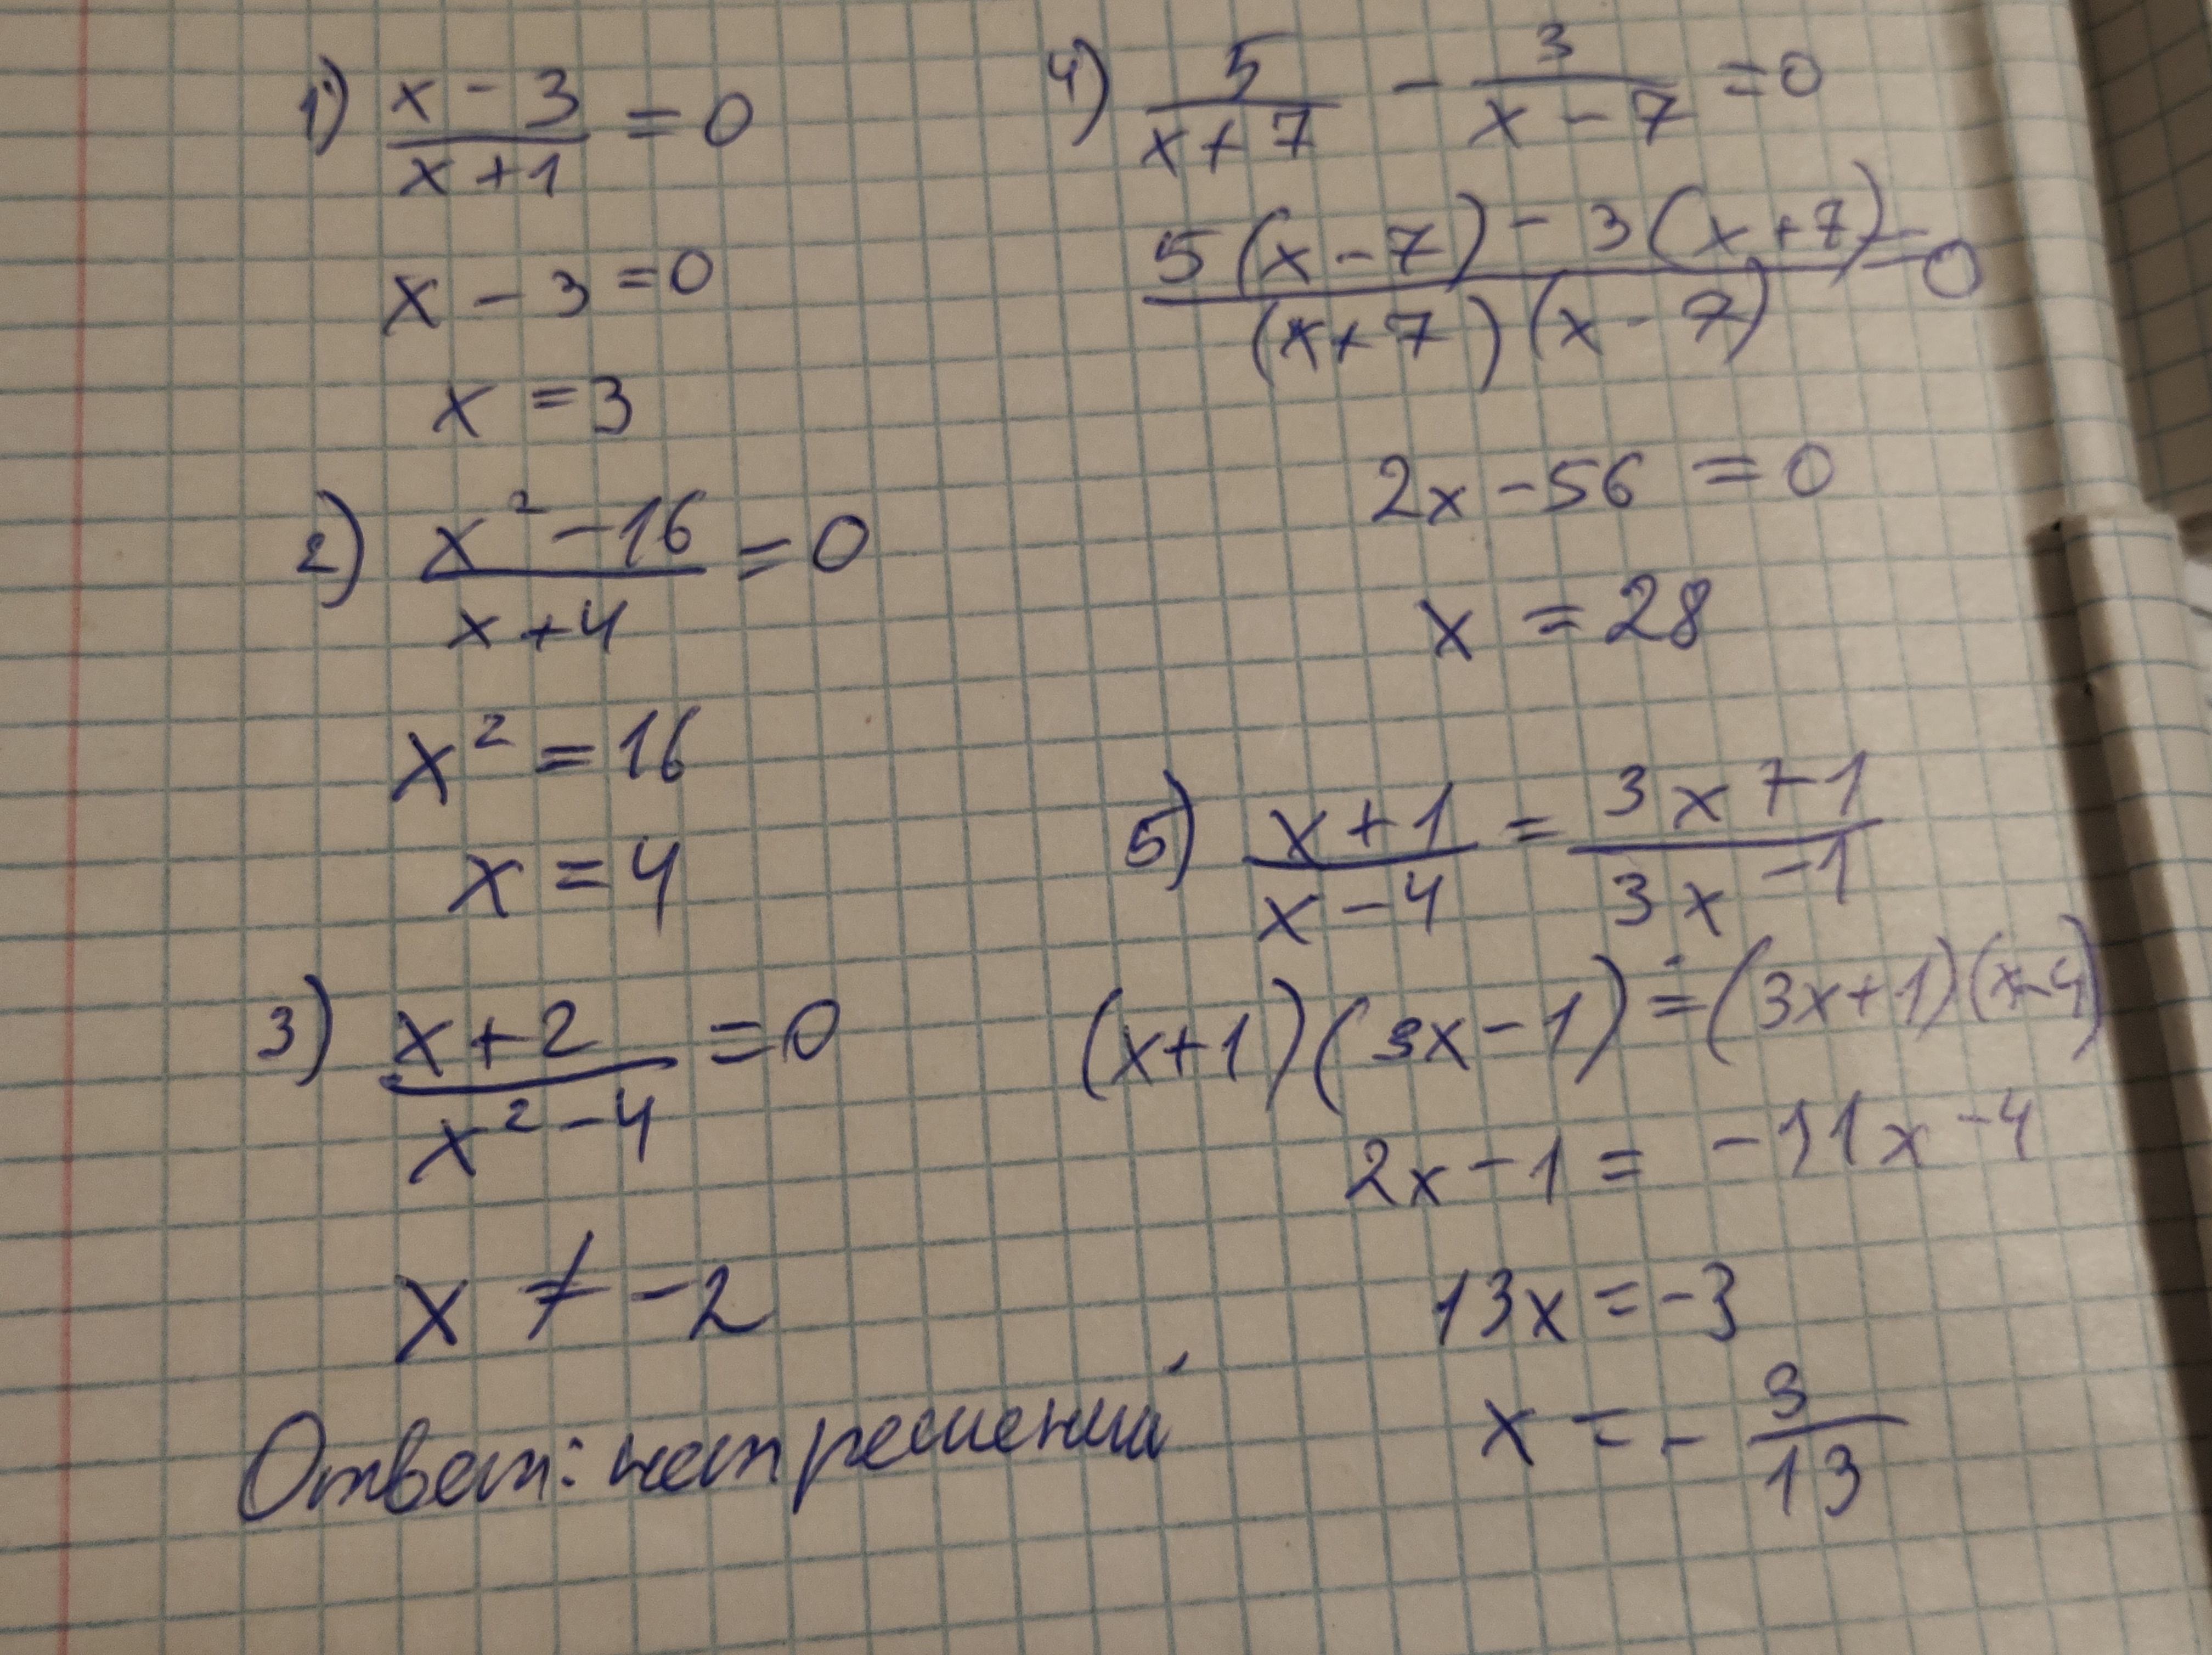 1) (x-3)/(x+1) = 0
x - 3 = 0
x = 3
2) (x²-16)/(x+4) = 0
x² = 16
x = 4
3) (x+2)/(x²-4) = 0
x ≠ -2
Ответ: нет решений
4) 5/(x+7) - 3/(x-7) = 0
(5(x-7) - 3(x+7))/((x+7)(x-7)) = 0
2x - 56 = 0
x = 28
5) (x+1)/(x-4) = (3x+1)/(3x-1)
(x+1)(3x-1) = (3x+1)(x-4)
2x - 1 = -11x - 4
13x = -3
x = - 3/13